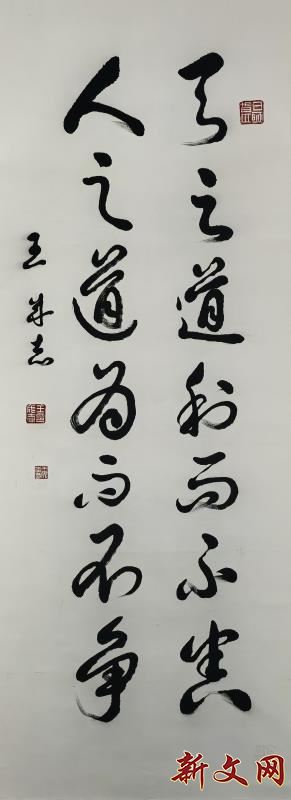 天之道利而不害
人之道为而不争
王成志
新文网